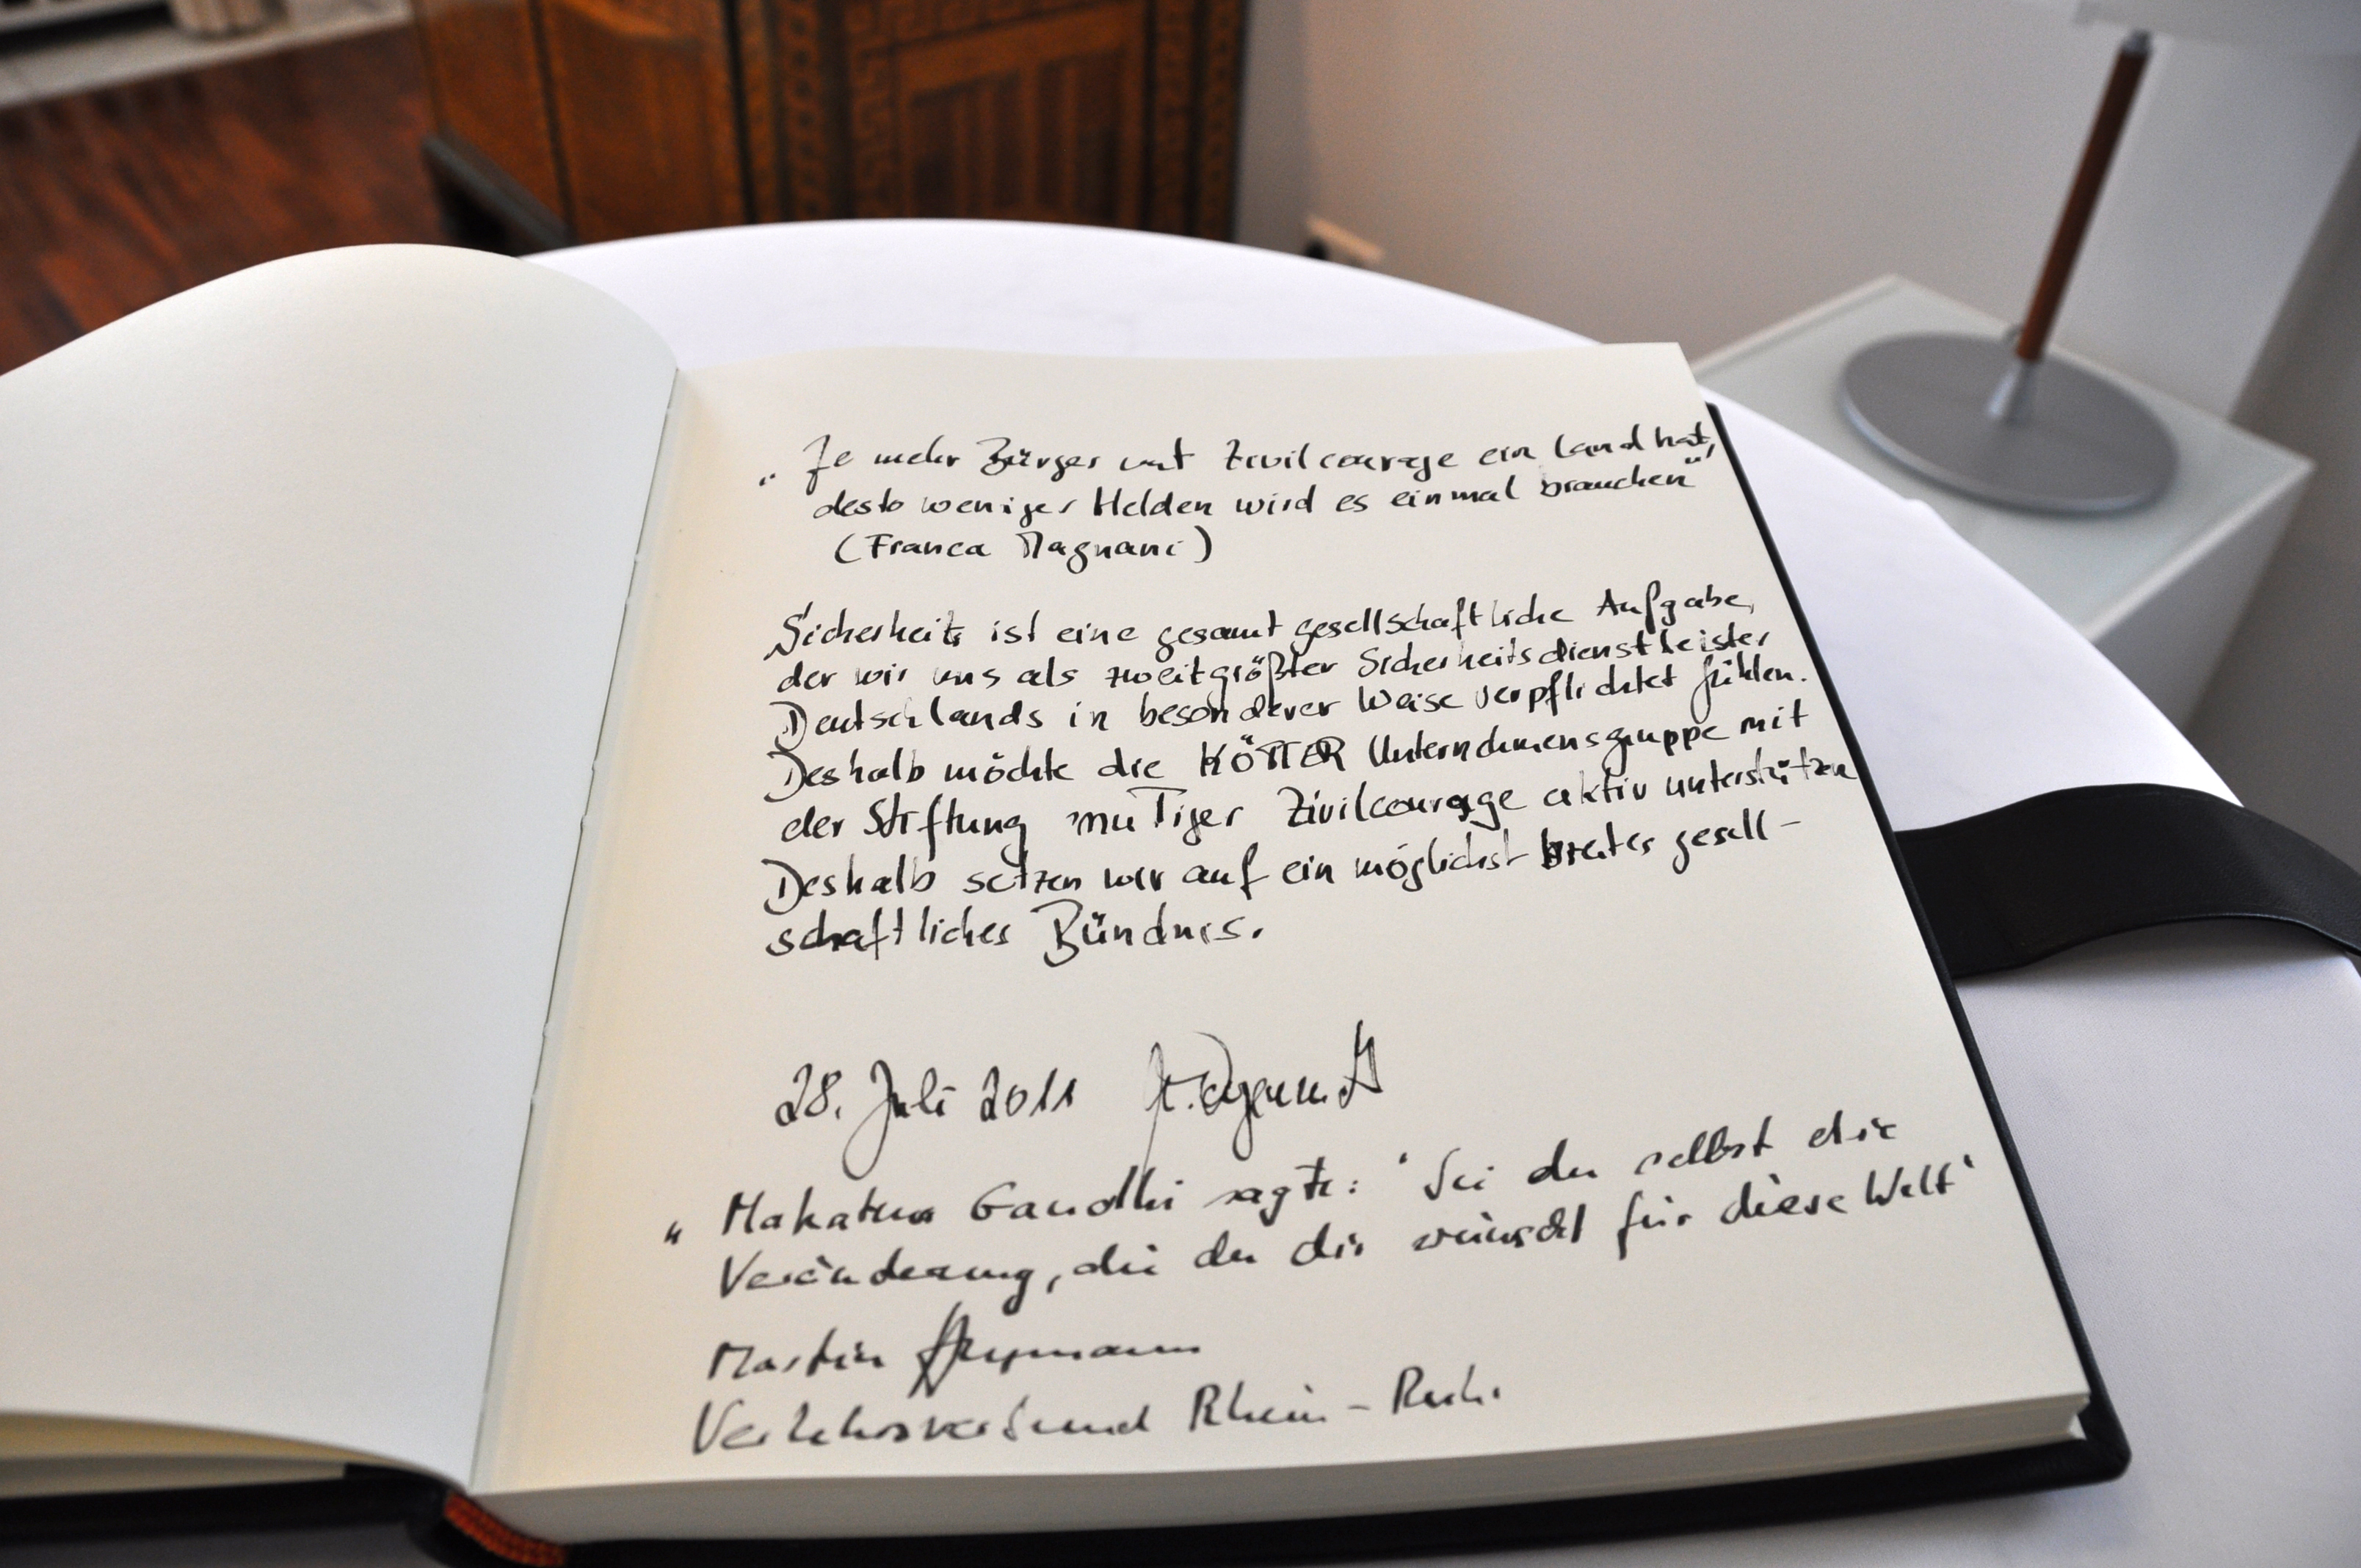 „Je mehr Bürger mit Zivilcourage ein Land hat,
desto weniger Helden wird es einmal brauchen"
(Franca Magnani)
Sicherheit ist eine gesamtgesellschaftliche Aufgabe,
der wir uns als zweitgrößter Sicherheitsdienstleister
Deutschlands in besonderer Weise verpflichtet fühlen.
Deshalb möchte die KÖTTER Unternehmensgruppe mit
der Stiftung muTiger Zivilcourage aktiv unterstützen
Deshalb setzen wir auf ein möglichst breites gesell-
schaftliches Bündnis.
28. Juli 2011
„Mahatma Gandhi sagte: 'Sei du selbst die
Veränderung, die du dir wünscht für diese Welt'
Martin
Verkehrsverbund Rhein-Ruhr